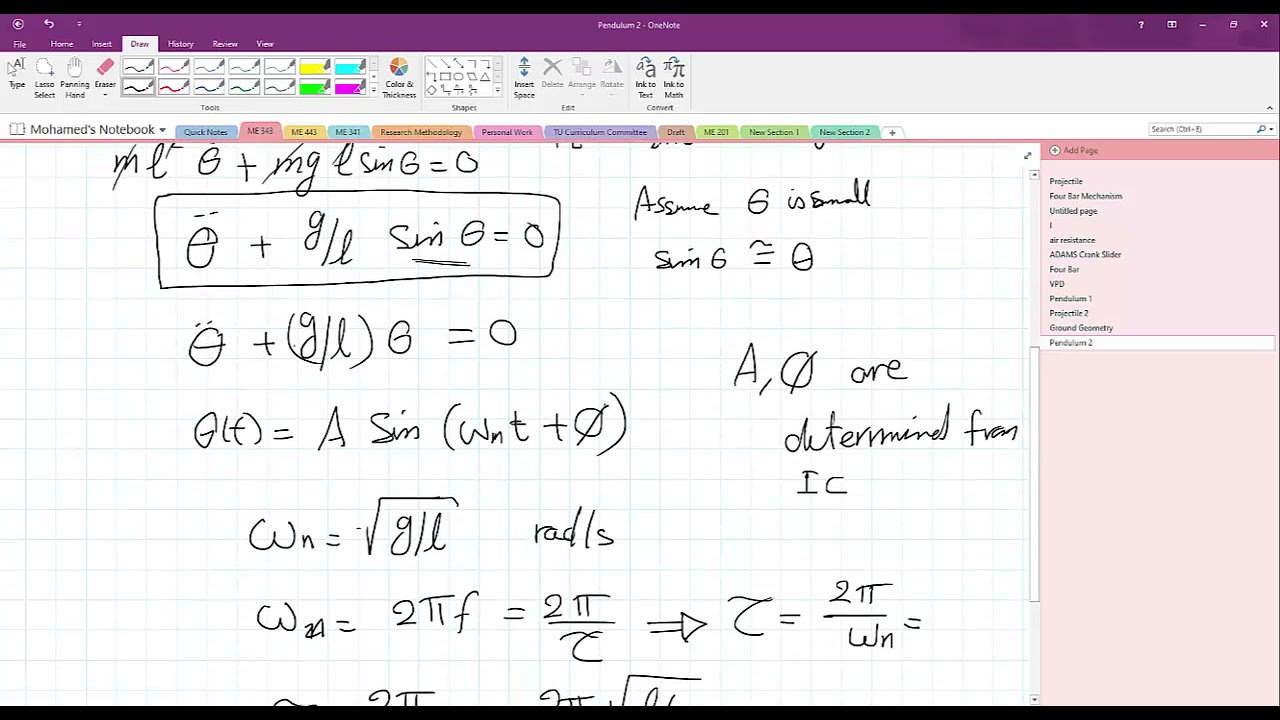 Pendulum 2 - OneNote
File Home Insert Draw History Review View
Type Lasso Select Panning Hand Eraser Color & Thickness Insert Space Delete Arrange Rotate Ink to Text Ink to Math
Tools Shapes Edit Convert
Mohamed's Notebook Quick Notes ME 343 ME 443 ME 341 Research Methodology Personal Work TU Curriculum Committee Draft ME 201 New Section 1 New Section 2 +
Search (Ctrl+E)
Add Page
Projectile
Four Bar Mechanism
Untitled page
I
air resistance
ADAMS Crank Slider
Four Bar
VPD
Pendulum 1
Projectile 2
Ground Geometry
Pendulum 2
ml² θ̈ + mg l sinθ = 0
θ̈ + g/l sin θ = 0
Assume θ is small
sinθ ≅ θ
θ̈ + (g/l) θ = 0
θ(t) = A Sin (ωnt + Ø)
A, Ø are
determined from
IC
ωn = √g/l rad/s
ωn = 2πf = 2π/τ ⇒ τ = 2π/ωn =